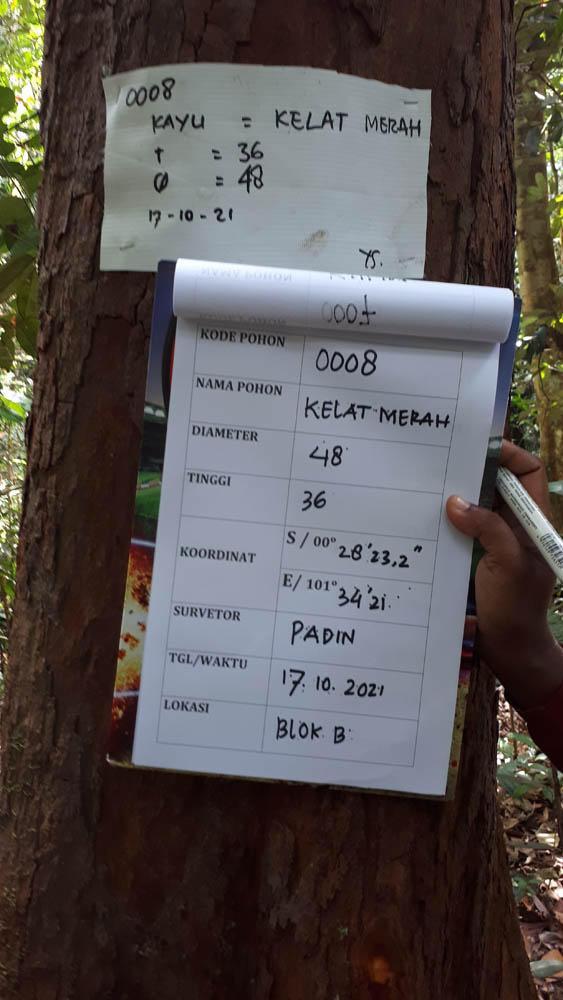 0008
KAYU = KELAT MERAH
T = 36
Ø = 48
17-10-21
YS.
KODE POHON 0008
NAMA POHON KELAT MERAH
DIAMETER 48
TINGGI 36
KOORDINAT S / 00° 28'23,2"
E/ 101° 34'21.
SURVETOR PADIN
TGL/WAKTU 17.10.2021
LOKASI BLOK B